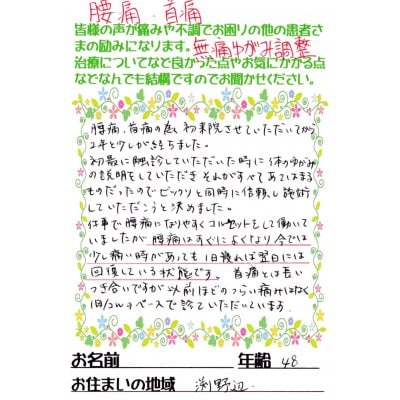 腰痛 首痛
皆様の声が痛みや不調でお困りの他の患者さ
まの励みになります。無痛ゆがみ調整
治療についてなど良かった点やお気にかかる点
などなんでも結構ですのでお聞かせください。
腰痛、首痛の為、初来院させていただいてから
2年と少しがたちました。
初最に触診していただいた時に体のゆがみ
の説明をしていただき それがすべてあてはまる
ものだったのでビックリと同時に信頼し施術
していただこうと決めました。
仕事で腰痛になりやすくコルセットをして働いて
いましたが 腰痛はすぐによくなり 今では
少し痛い時があっても 1日寝れば翌日には
回復している状態です。首痛とは長い
つき合いですが以前ほどのつらい痛みはなく
1回/2ヶ月ペースで診ていただいています。
お名前 年齢 48
お住まいの地域 渕野辺